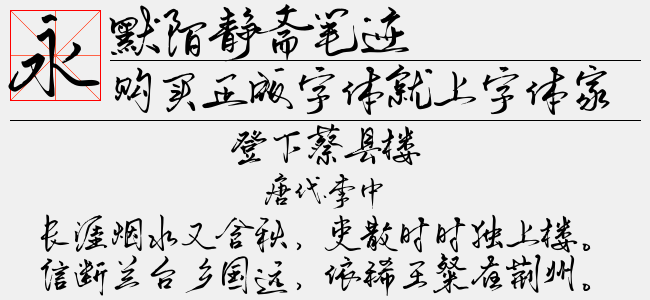 永
默陌静斋笔迹
购买正版字体就上字体家
登下蔡县楼
唐代.李中
长涯烟水又含秋，吏散时时独上楼。
信断兰台乡国远，依稀王粲在荆州。